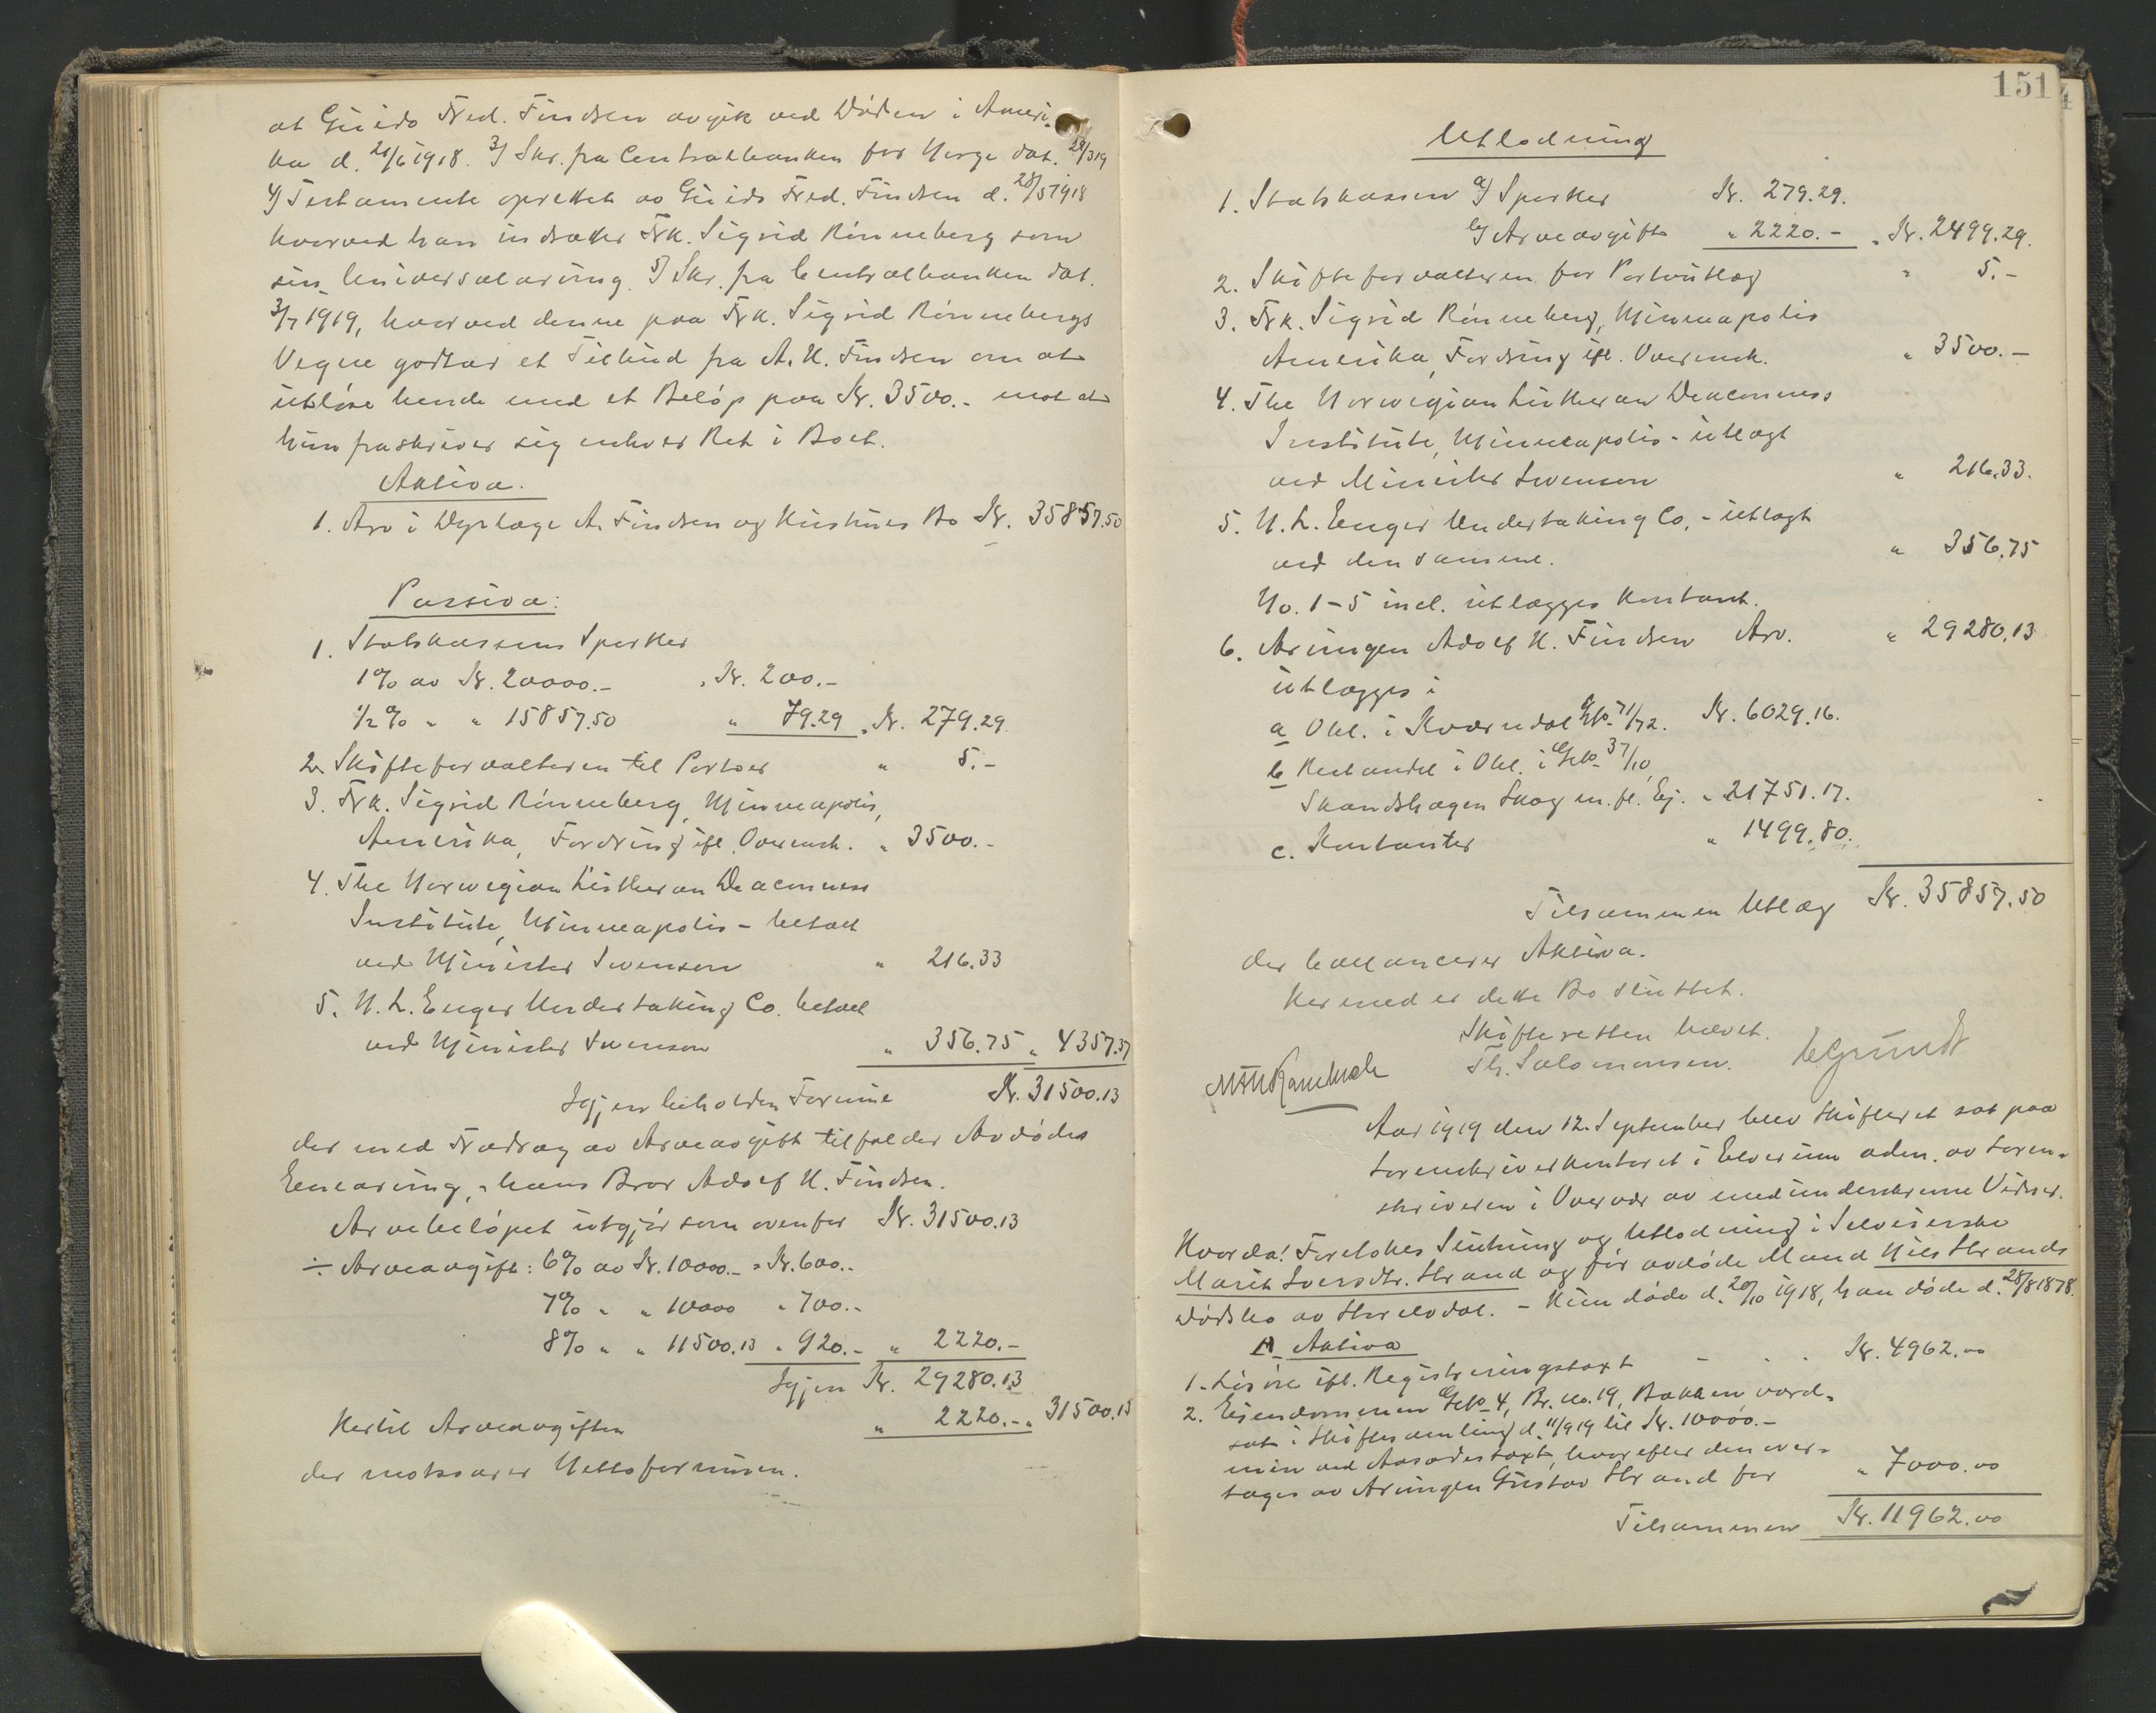 at Guido Fred. Findsen avgik ved Døden i Ameri-
ka d. 21/6 1918. 3) Skr. fra Centralbanken for Norge dat. 29/3 19
4) Testamente oprettet av Guido Fred. Findsen d. 28/5 1918
hvorved han indsætter Frk. Sigrid Rønneberg som
sin Universalarving. 5) Skr. fra Centralbanken dat.
3/7 1919, hvorved denne paa Frk. Sigrid Rønnebergs
Vegne godtar et Tilbud fra A. H. Findsen om at
utløse hende med et Beløp paa Kr. 3500.- mot at
hun fraskriver sig enhver Ret i Boet.
Aktiva.
1. Arv i Dyrlæge A. Findsen og Hustrues Bo Kr. 35857.50
Passiva:
1. Statskassens Sportler
1% av Kr. 20000.- Kr. 200.-
1/2% " " 15857.50 " 79.29 Kr. 279.29
2. Skifteforvalteren til Portoer " 5.-
3. Frk. Sigrid Rønneberg, Minneapolis,
Amerika, Fordring ifl. Overensk. " 3500.-
4. The Norwegian Lutheran Deaconness
Institute, Minneapolis - betalt
ved Minister Swenson " 216.33
5. N. L. Enger Undertaking Co. betalt
ved Minister Swenson " 356.75 " 4357.37
Igjen beholden Formue Kr. 31500.13
der med Fradrag av Arveavgift tilfalder Avdødes
Enearving, hans Bror Adolf H. Findsen.
Arvebeløpet utgjør som ovenfor Kr. 31500.13
÷ Arveavgift: 6% av Kr. 10000.- = Kr. 600.-
7% " " 10000 " 700.-
8% " " 11500.13 " 920.- " 2220.-
Igjen Kr. 29280.13
Hertil Arveavgiften " 2220.- " 31500.13
der motsvarer Nettoformuen.
151
Utlodning
1. Statskassen a) Sportler Kr. 279.29.
b) Arveavgift " 2220.- Kr. 2499.29.
2. Skifteforvalteren for Portoutlæg " 5.-
3. Frk. Sigrid Rønneberg, Minneapolis
Amerika, Fordring ifl. Overensk. " 3500.-
4. The Norwegian Lutheran Deaconness
Institute, Minneapolis - utlagt
ved Minister Swenson " 216.33.
5. N. L. Enger Undertaking Co. - utlagt
ved den samme. " 356.75
No. 1-5 incl. utlægges kontant.
6. Arvingen Adolf H. Findsen Arv. " 29280.13
utlægges i
a Obl. i Kværndal Gbo. 71/72. Kr. 6029.16.
b Restandel i Obl. i Gbo. 37/10,
Skandshagen Skog m. fl. Ej. " 21751.17.
c. Kontanter " 1499.80.
Tilsammen Utlæg Kr. 35857.50
der ballancerer Aktiva.
Hermed er dette Bo sluttet.
Skifteretten hævet.
Th. Salomonsen. Grundt
Aar 1919 den 12. September blev Skifteret sat paa
Sorenskriverkontoret i Elverum adm. av Soren-
skriveren i Overvær av medunderskrevne Vidner.
Hvorda! Foretokes Slutning og Utlodning i Selveierske
Marit Iversdtr. Strand og før avdøde Mand Nils Strands
Dødsbo av Storelvdal. - Hun døde d. 20/10 1918, han døde d. 28/8 1878.
A. Aktiva
1. Løsøre ifl. Registreringstaxt Kr. 4962.00
2. Eiendommen Gbo 4, Br. no. 19, Bakken værd-
sat i Skiftesamling d. 11/9 19 til Kr. 10000.-
men ved Aasædestaxt, hvorefter den over-
tages av Arvingen Gustav Strand for " 7000.00
Tilsammen Kr. 11962.00